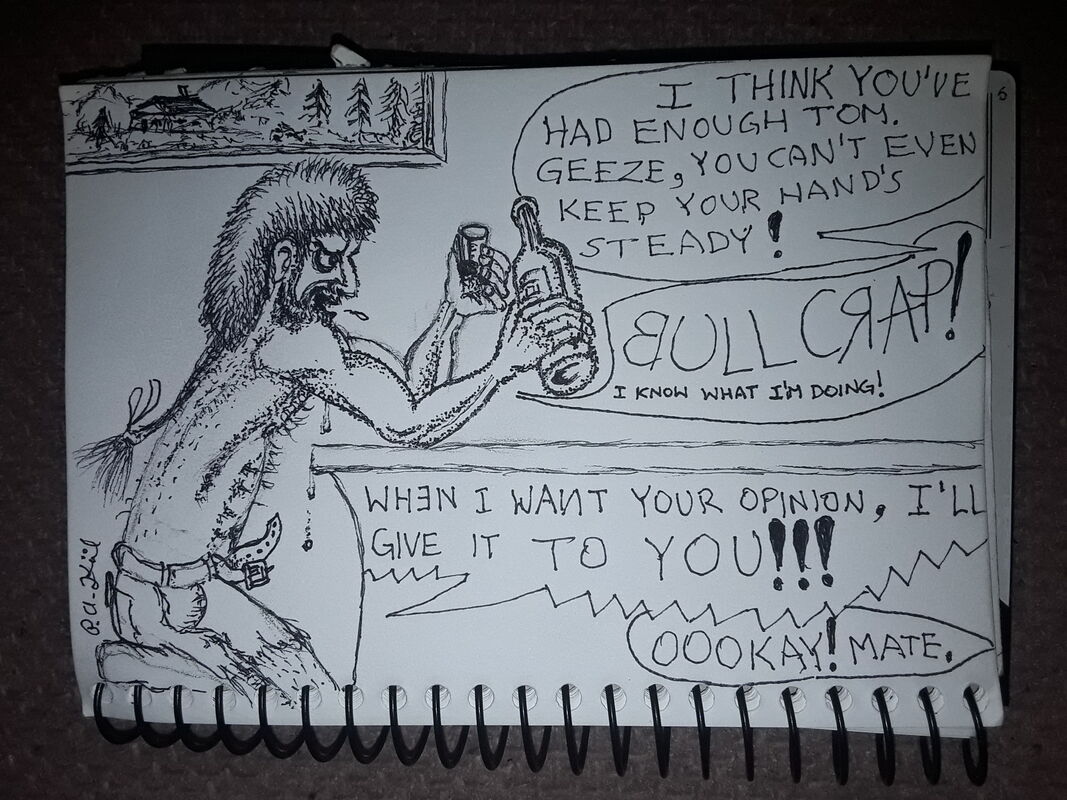 I THINK YOU'VE
HAD ENOUGH TOM.
GEEZE, YOU CAN'T EVEN
KEEP YOUR HAND'S
STEADY!
BULL CRAP!
I KNOW WHAT I'M DOING!
WHEN I WANT YOUR OPINION, I'LL
GIVE IT TO YOU!!!
OOOKAY! MATE.
6